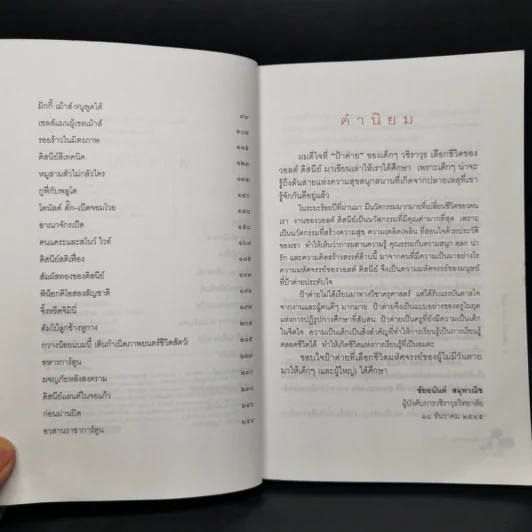 มิกกี้ เม้าส์-หนูพูดได้ ๙๙
เซลส์แมนผู้เซลเม้าส์ ๑๐๘
รอยร้าวในมิตรภาพ ๑๑๕
ดิสนีย์สีเทคนิค
หมูสามตัวไม่กลัวใคร
กูฟี่กับพลูโต
โดนัลด์ ดั๊ก-เป็ดจอมโวย
อาณาจักรเป็ด
คนแคระและสโนว์ ไวท์
ดิสนีย์สติเฟื่อง
สมัยสองของดิสนีย์
พินอิกคิโอสองสัญชาติ
จิ้งหรีดจิมินี่
ดัมโบ้ลูกช้างหูกาง
กวางน้อยแบมบี้ (ต้นกำเนิดภาพยนตร์ชีวิตสัตว์)
ทหารการ์ตูน
ผจญภัยหลังสงคราม
ดิสนีย์แลนด์ในจอแก้ว
ก่อนม่านปิด ๒๔๖
อวสานราชาการ์ตูน ๒๕๔
คำนิยม
ผมดีใจที่ “ป้าต่าย” ของเด็กๆ วชิราวุธ เลือกชีวิตของ
วอลต์ ดิสนีย์ มาเขียนเล่าให้เราได้ศึกษา เพราะเด็กๆ น่าจะ
รู้ถึงต้นสายแห่งความสุขสนุกสนานที่เกิดจากปลายเหตุที่เขา
รู้จักกันดีอยู่แล้ว
ในระยะร้อยปีที่ผ่านมา มีนวัตกรรมมากมายที่เปลี่ยนชีวิตของคน
เรา งานของวอลต์ ดิสนีย์เป็นนวัตกรรมที่มีคุณค่ามากที่สุด เพราะ
เป็นนวัตกรรมที่สร้างความสุข ความเพลิดเพลิน ที่สอนใจด้วยประวัติ
ของเขา ทำให้เห็นว่าการผสานความรู้ คุณธรรมกับความสนุก ตลก น่า
รัก และความคิดสร้างสรรค์ด้านนี้ มาจากคนที่มีความเป็นมาอย่างไร
ความมหัศจรรย์ของวอลต์ ดิสนีย์ จึงเป็นความมหัศจรรย์ของมนุษย์
ที่ป้าต่ายประทับใจ
ป้าต่ายไม่ได้เรียนมาทางวิชาครุศาสตร์ แต่ได้รับแรงบันดาลใจ
จากงานและผู้คนดีๆ มากมาย ป้าต่ายจึงเป็นแบบอย่างของครูในยุค
แห่งการปฏิรูปการศึกษาที่สับสน ป้าต่ายเป็นครูที่ยังมีความเป็นเด็ก
ในจิตใจ ความเป็นเด็กเป็นสิ่งสำคัญที่ทำให้การเรียนรู้เป็นการเรียนรู้
ตลอดชีวิตได้ ทำให้เกิดชีวิตแห่งการเรียนรู้ที่เป็นอมตะ
ขอบใจป้าต่ายที่เลือกชีวิตมหัศจรรย์ของผู้ไม่มีวันตาย
มาให้เด็กๆ (และผู้ใหญ่) ได้ศึกษา
ชัยอนันต์ สมุทวณิช
ผู้บังคับการวชิราวุธวิทยาลัย
๑๘ ธันวาคม ๒๕๔๕